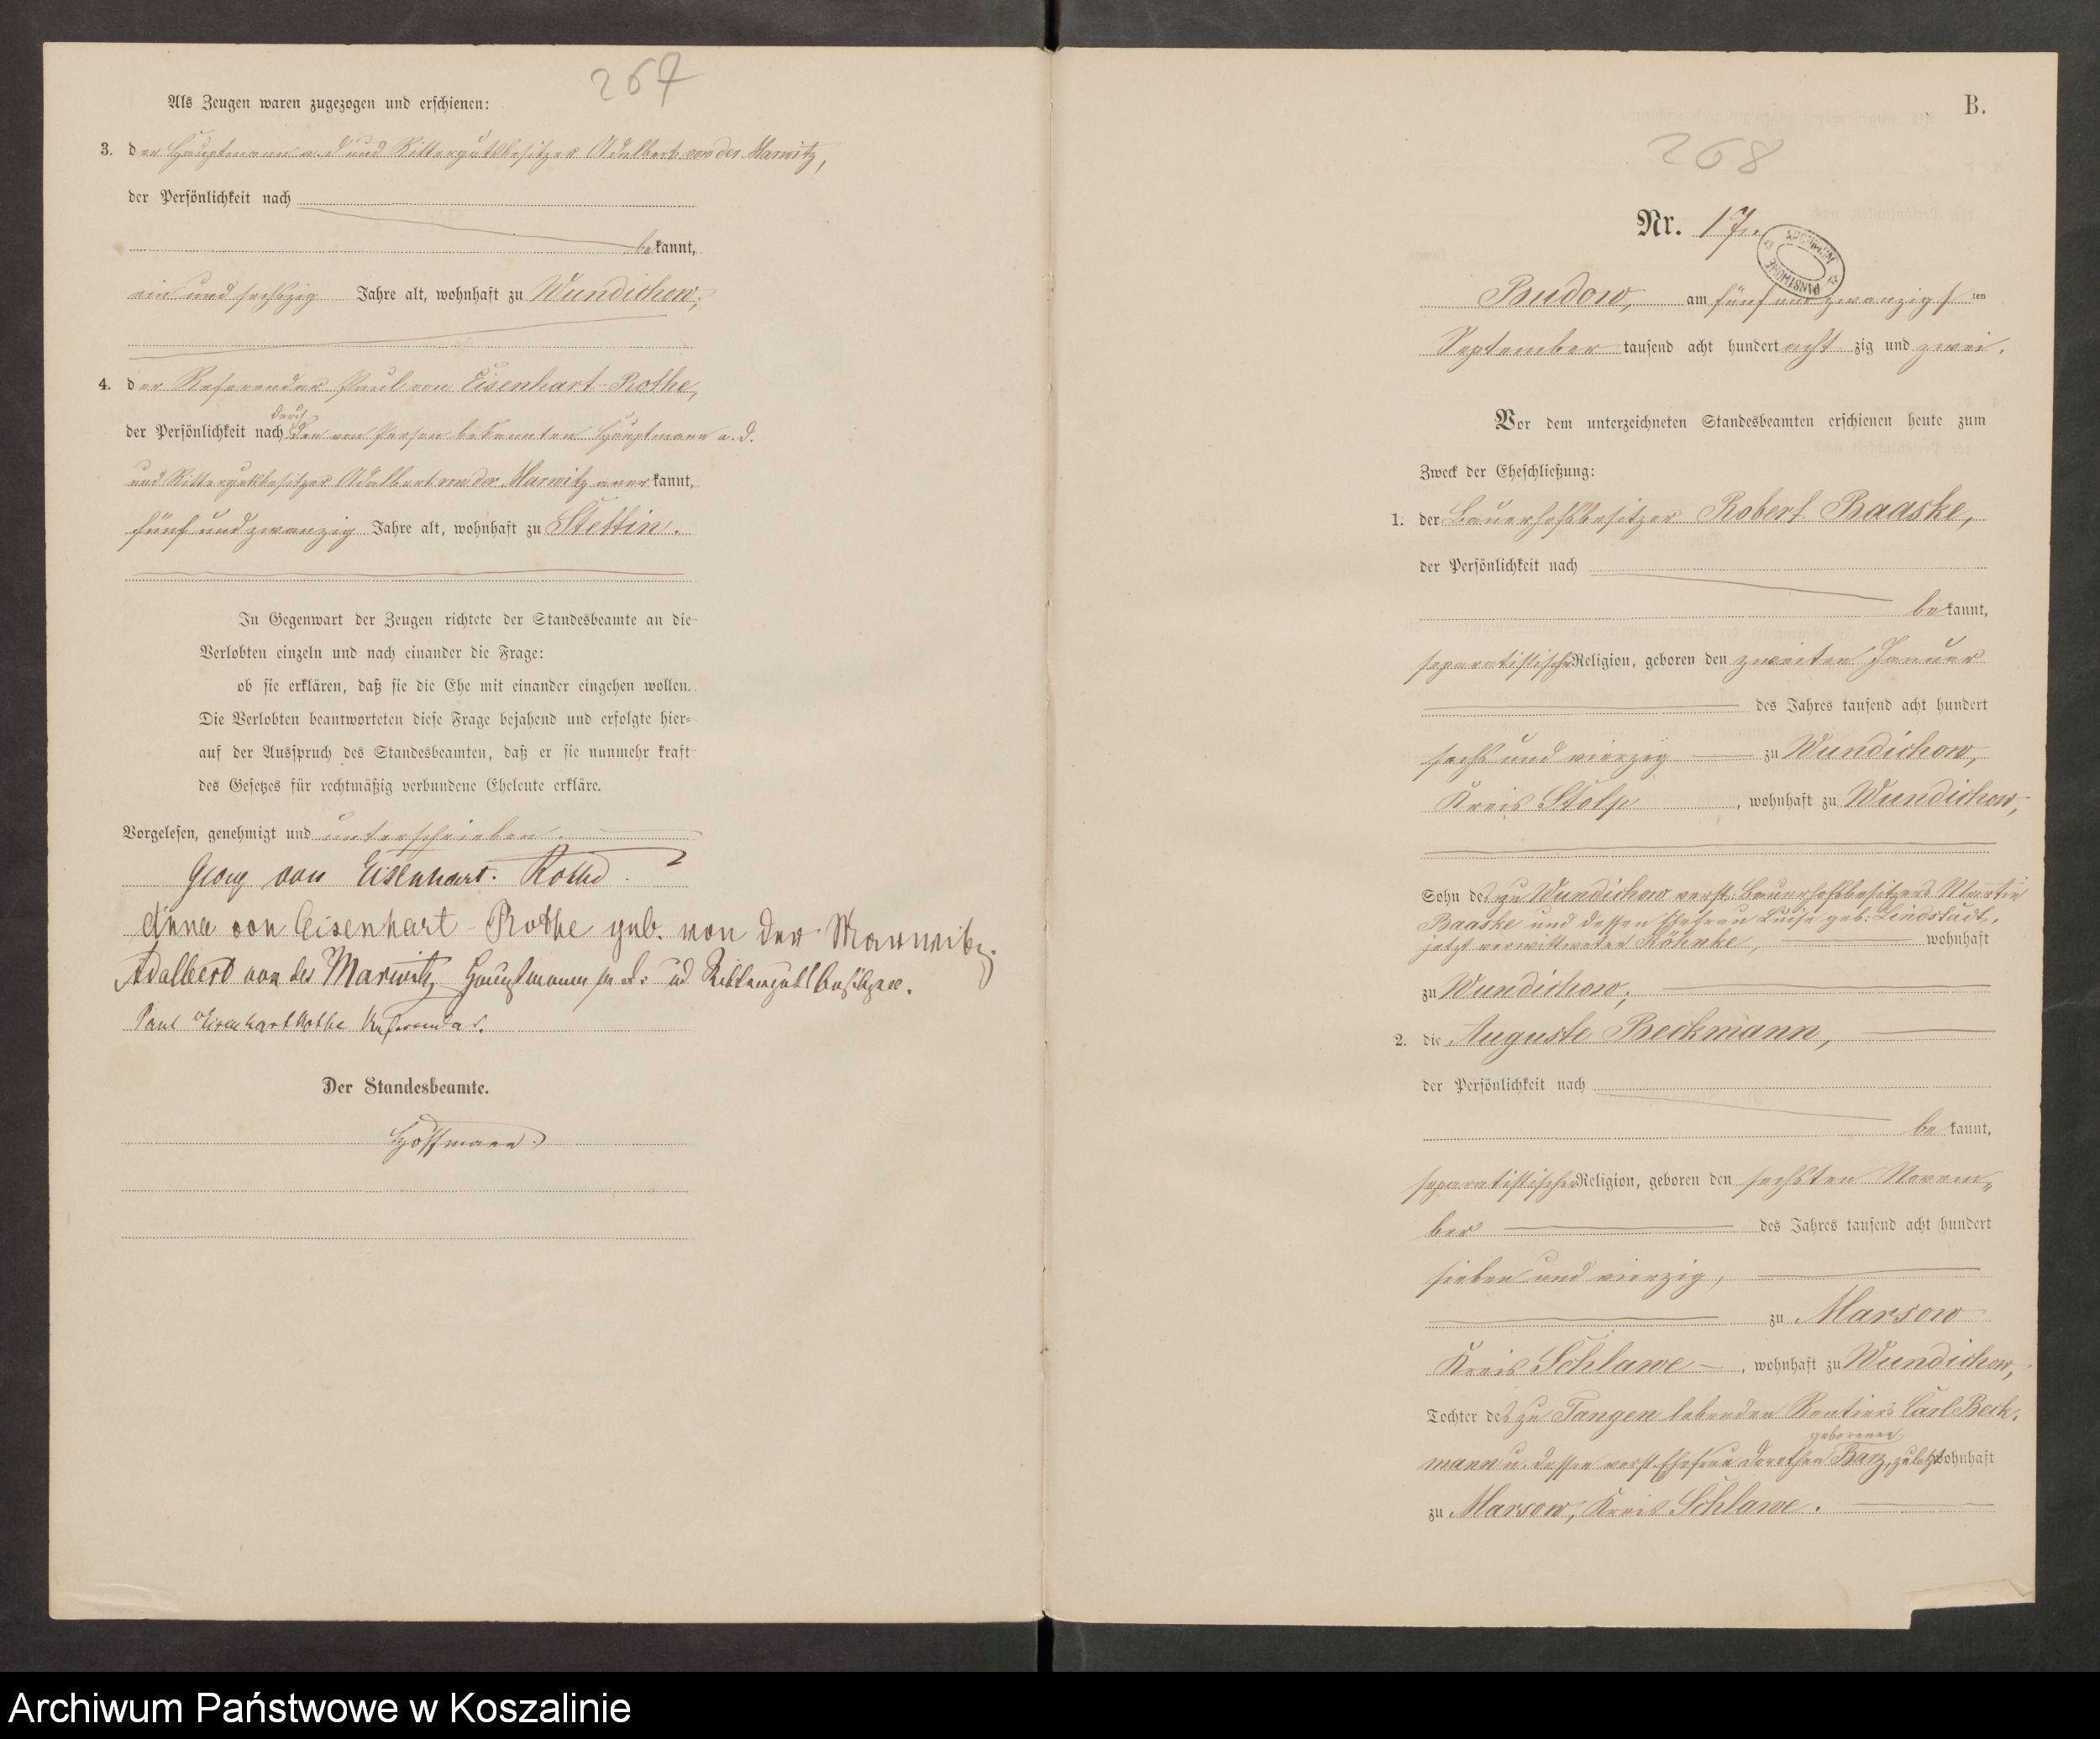 267
Als Zeugen waren zugezogen und erschienen:
3. der Hauptmann a. D und Rittergutsbesitzer Adalbert von der Marwitz,
der Persönlichkeit nach
bekannt,
ein und sechszig Jahre alt, wohnhaft zu Wundichow;
4. der Referendar Paul von Eisenhart-Rothe,
durch
der Persönlichkeit nach den von Person bekannten Hauptmann a. D.
und Rittergutsbesitzer Adalbert von der Marwitz anerkannt,
fünf und zwanzig Jahre alt, wohnhaft zu Stettin.
In Gegenwart der Zeugen richtete der Standesbeamte an die
Verlobten einzeln und nach einander die Frage:
ob sie erklären, daß sie die Ehe mit einander eingehen wollen.
Die Verlobten beantworteten diese Frage bejahend und erfolgte hier-
auf der Ausspruch des Standesbeamten, daß er sie nunmehr kraft
des Gesetzes für rechtmäßig verbundene Eheleute erkläre.
Vorgelesen, genehmigt und unterschrieben.
Georg von Eisenhart-Rothe
Anna von Eisenhart-Rothe geb. von der Marwitz.
Adalbert von der Marwitz, Hauptmann a. d. und Rittergutsbesitzer.
Paul v Eisenhart Rothe Referendar.
Der Standesbeamte.
Hoffmann.
B.
268
Nr. 17.
ARCHIWUM PAŃSTWOWE
Budow, am fünf und zwanzigsten
September tausend acht hundert achtzig und zwei.
Vor dem unterzeichneten Standesbeamten erschienen heute zum
Zweck der Eheschließung:
1. der Bauerhofsbesitzer Robert Baaske,
der Persönlichkeit nach
bekannt,
separatistischer Religion, geboren den zweiten Januar
des Jahres tausend acht hundert
sechs und vierzig zu Wundichow,
Kreis Stolp, wohnhaft zu Wundichow,
Sohn des zu Wundichow verst. Bauerhofsbesitzers Martin
Baaske und dessen Ehefrau Luise geb. Lindstädt,
jetzt verwittweten Röhnke, wohnhaft
zu Wundichow;
2. die Auguste Beckmann,
der Persönlichkeit nach
bekannt,
separatistischer Religion, geboren den sechsten Novem-
ber des Jahres tausend acht hundert
sieben und vierzig,
zu Marsow
Kreis Schlawe, wohnhaft zu Wundichow,
Tochter des zu Tangen lebenden Rentiers Carl Beck-
geborenen
mann u. dessen verst. Ehefrau Dorothea Barz, zuletzt wohnhaft
zu Marsow, Kreis Schlawe.
Archiwum Państwowe w Koszalinie